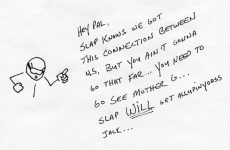 HEY PAL.
SLAP KNOWS WE GOT
THIS CONNECTION BETWEEN
US, BUT YOU AIN'T GONNA
GO THAT FAR... YOU NEED TO
GO SEE MOTHER G...
SLAP WILL GET ALLUPINYOASS
JACK...